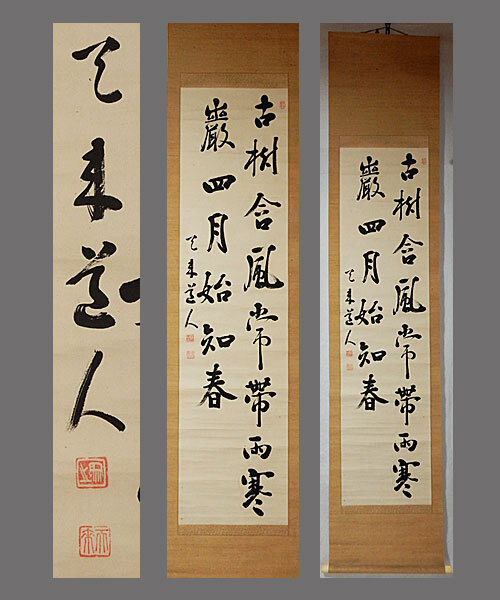 天来道人
古樹含風常帶雨寒
巖四月始知春
天来道人
古樹含風常帶雨寒
巖四月始知春
天来道人